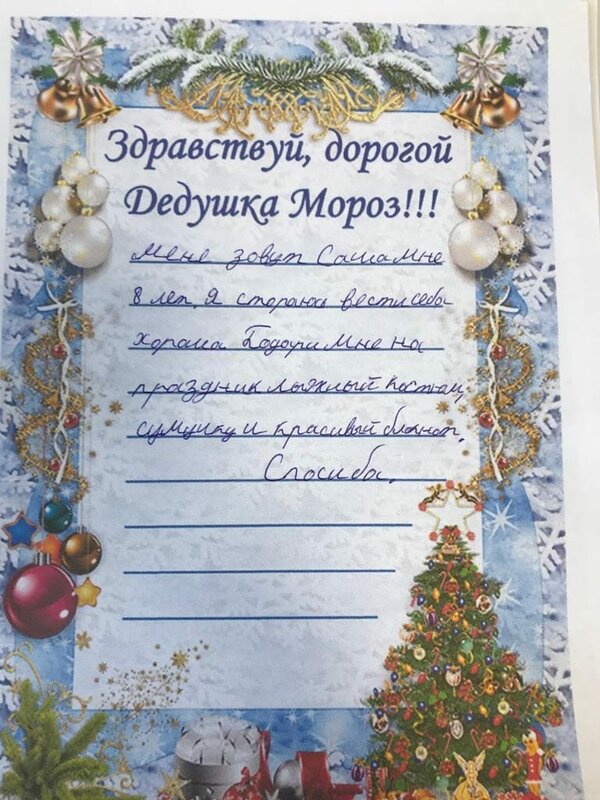 Здравствуй, дорогой
Дедушка Мороз!!!
Меня зовут Саша Мне
8 лет, Я стараюсь вести себя
хорошо Подари Мне на
праздник лыжный костюм,
сумочку и красивый блокнот,
Спасиба.